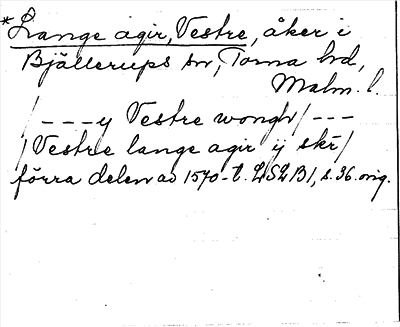 *Lange agir, Vestre, åker i
Bjällerups sn, Torna hd,
Malm. l.
/ - - - y Vestre wongh / - - -
/ Vestre lange agir ij skr̄ /
förra delen av 1570-t. LSLB1, s. 36. orig.